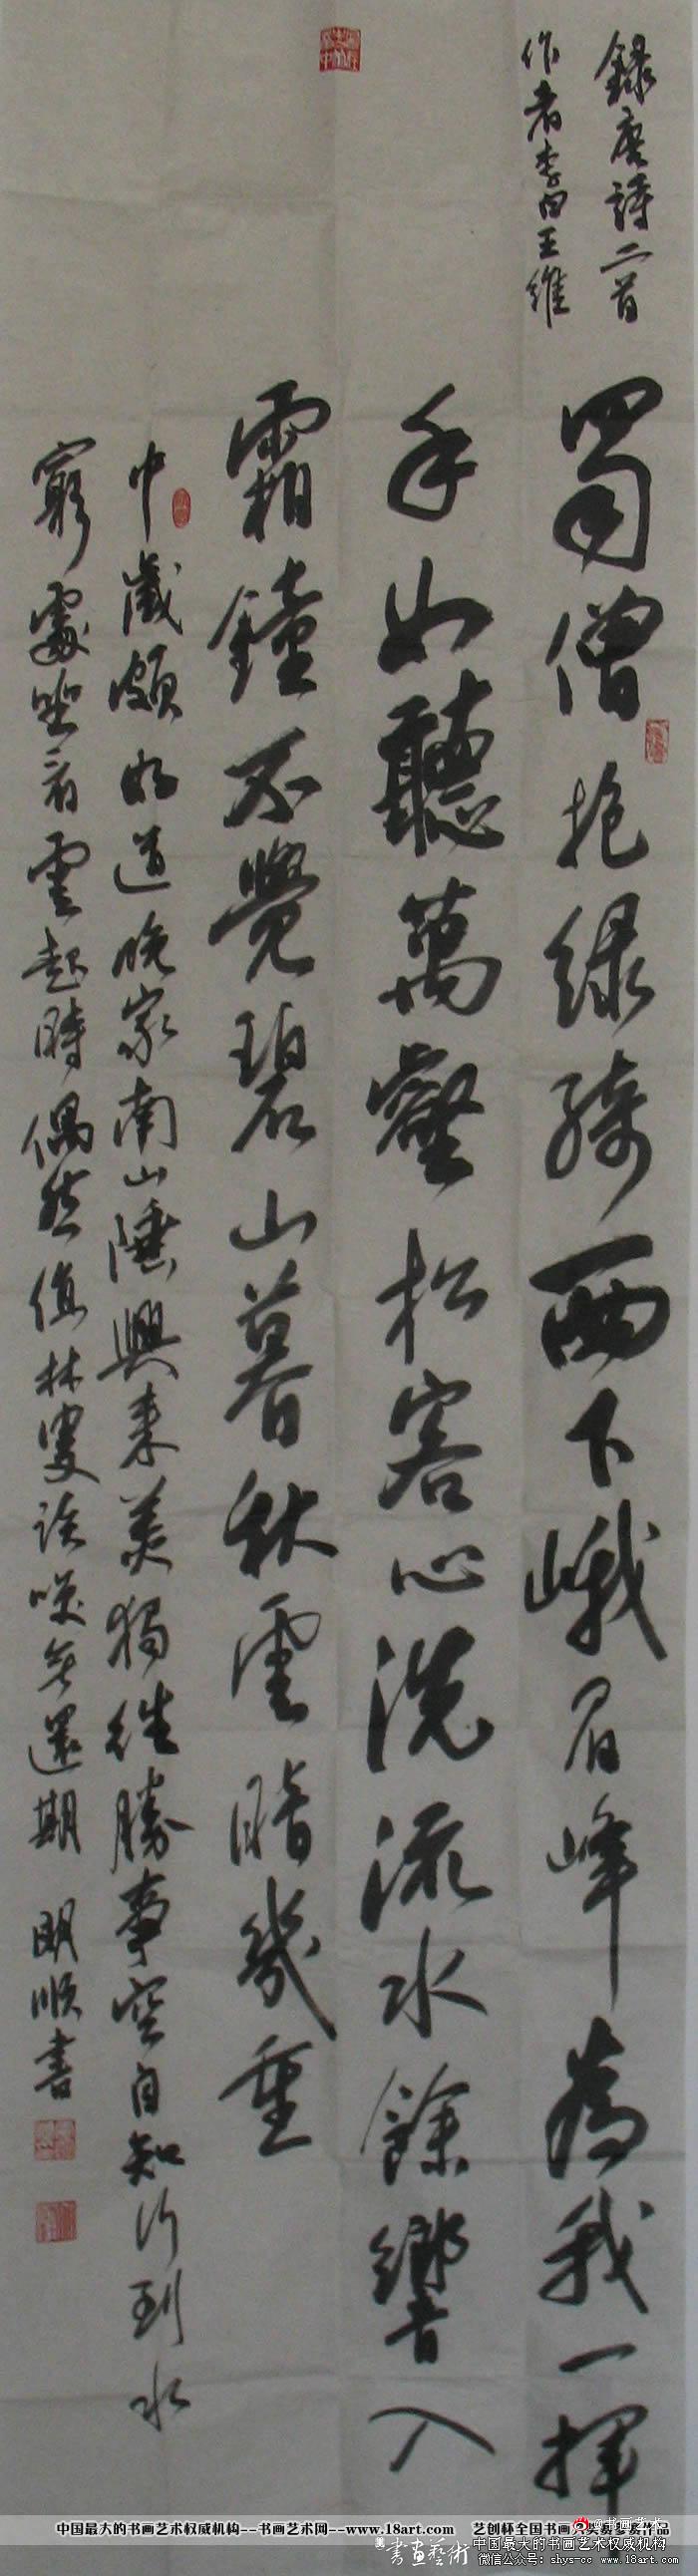 錄唐詩二首
作者李白王維
蜀僧抱綠綺西下峨眉峰為我一揮
手如聽萬壑松客心洗流水餘響入
霜鐘不覺碧山暮秋雲暗幾重
中歲頗好道晚家南山陲興來美獨往勝事空自知行到水
窮處坐看雲起時偶然值林叟談咲無還期 明順書
中国最大的书画艺术权威机构--书画艺术网--www.18art.com 艺创杯全国书画大奖赛参赛作品
@书画艺术
書畫藝術 中国最大的书画艺术权威机构
微信公众号：shys-cc www.18art.com